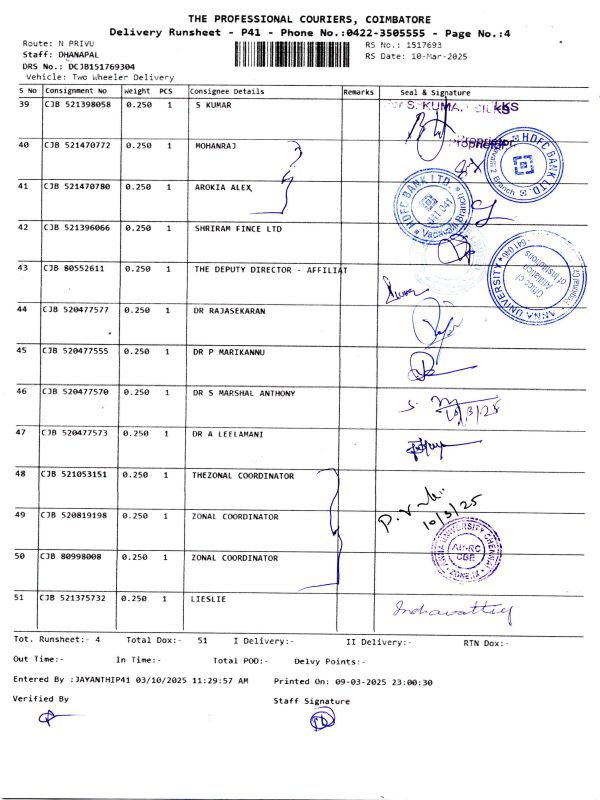 THE PROFESSIONAL COURIERS, COIMBATORE
Delivery Runsheet - P41 - Phone No.:0422-3505555 - Page No.:4
Route: N PRIVU
RS No.: 1517693
Staff: DHANAPAL
RS Date: 10-Mar-2025
DRS No.: DCJB151769304
Vehicle: Two Wheeler Delivery
S No Consignment No Weight PCS Consignee Details Remarks Seal & Signature
39 CJB 521398058 0.250 1 S KUMAR
For S. KUMAR SILKS
Proprietor
40 CJB 521470772 0.250 1 MOHANRAJ
HDFC BANK LTD.
41 CJB 521470780 0.250 1 AROKIA ALEX
HDFC BANK LTD. Vadavalli Branch 641 041
42 CJB 521396066 0.250 1 SHRIRAM FINCE LTD
43 CJB 80552611 0.250 1 THE DEPUTY DIRECTOR - AFFILIAT
Office of Affiliation of Institutions ANNA UNIVERSITY
44 CJB 520477577 0.250 1 DR RAJASEKARAN
45 CJB 520477555 0.250 1 DR P MARIKANNU
46 CJB 520477570 0.250 1 DR S MARSHAL ANTHONY
10/3/25
47 CJB 520477573 0.250 1 DR A LEELAMANI
48 CJB 521053151 0.250 1 THEZONAL COORDINATOR
10/3/25
49 CJB 520819198 0.250 1 ZONAL COORDINATOR
50 CJB 80998008 0.250 1 ZONAL COORDINATOR
ANNA UNIVERSITY CHENNAI AU-RC CBE
51 CJB 521375732 0.250 1 LIESLIE
Tot. Runsheet:- 4 Total Dox:- 51 I Delivery:- II Delivery:- RTN Dox:-
Out Time:- In Time:- Total POD:- Delvy Points:-
Entered By :JAYANTHIP41 03/10/2025 11:29:57 AM Printed On: 09-03-2025 23:00:30
Verified By
Staff Signature